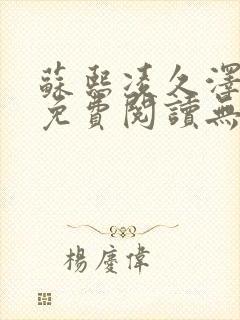 蘇熙凌久澤
免費閱讀無
楊慶偉